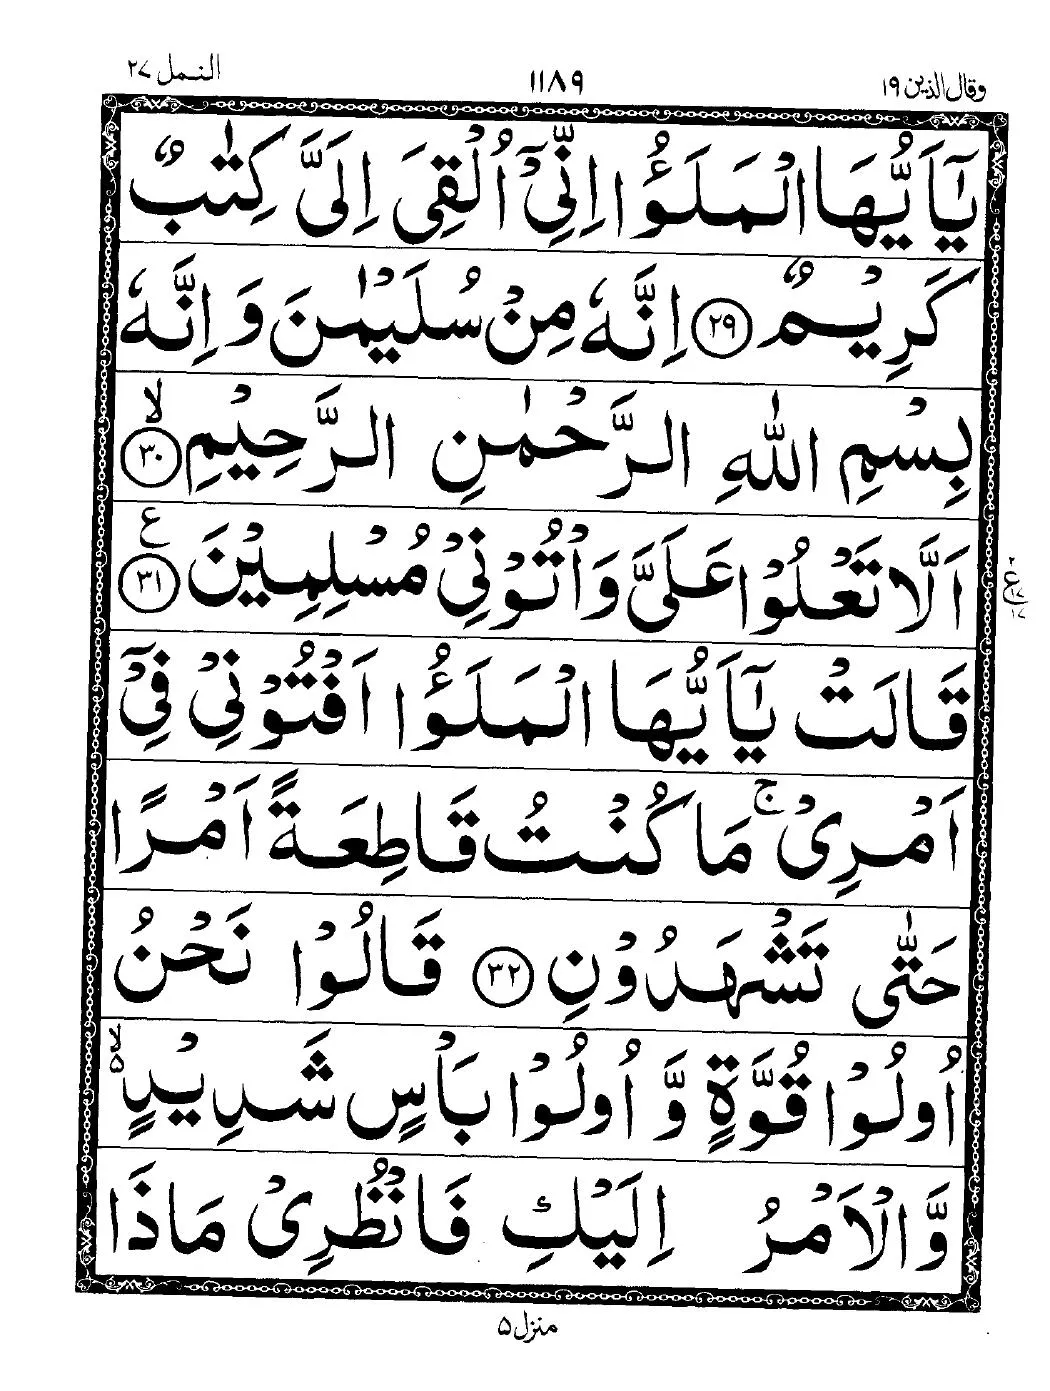 وقال الذين ١٩
١١٨٩
النمل ٢٧
يٰۤاَيُّهَا الْمَلَؤُا اِنِّيْۤ اُلْقِيَ اِلَيَّ كِتٰبٌ
كَرِيْمٌ ﴿٢٩﴾ اِنَّهٗ مِنْ سُلَيْمٰنَ وَاِنَّهٗ
بِسْمِ اللّٰهِ الرَّحْمٰنِ الرَّحِيْمِ ﴿٣٠﴾ لا
اَلَّا تَعْلُوْا عَلَيَّ وَاْتُوْنِيْ مُسْلِمِيْنَ ﴿٣١﴾ ع
قَالَتْ يٰۤاَيُّهَا الْمَلَؤُا اَفْتُوْنِيْ فِيْۤ
اَمْرِيْ ج مَا كُنْتُ قَاطِعَةً اَمْرًا
حَتّٰى تَشْهَدُوْنِ ﴿٣٢﴾ قَالُوْا نَحْنُ
اُولُوْا قُوَّةٍ وَّ اُولُوْا بَاْسٍ شَدِيْدٍ ۵ لا
وَّالْاَمْرُ اِلَيْكِ فَانْظُرِيْ مَاذَا
٢
ع
١٧
١٧
منزل ۵